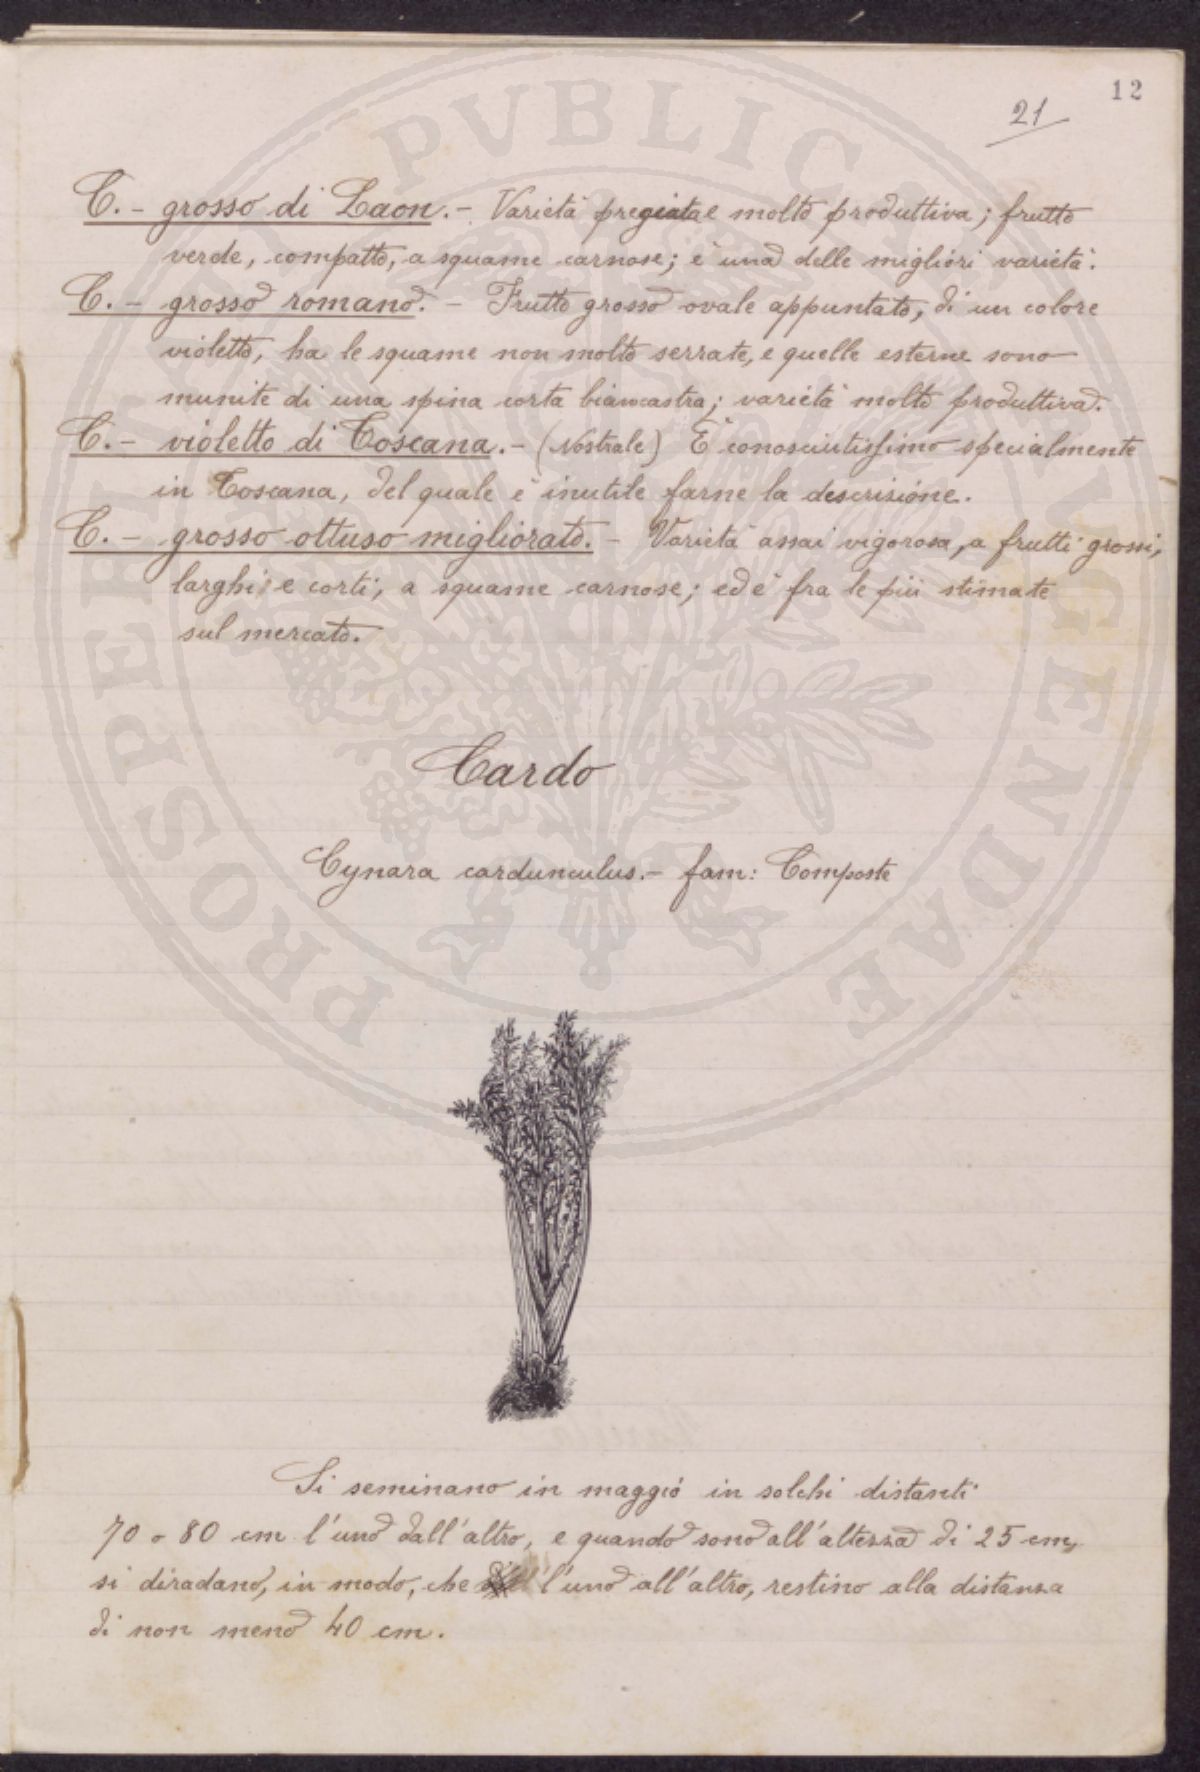 12
21
C. - grosso di Laon. - Varietà pregiata e molto produttiva; frutto
verde, compatto, a squame carnose; è una delle migliori varietà.
C. - grosso romano. - Frutto grosso ovale appuntato, di un colore
violetto, ha le squame non molto serrate, e quelle esterne sono
munite di una spina corta biancastra; varietà molto produttiva.
C. - violetto di Toscana. - (Nostrale) È conosciutissimo specialmente
in Toscana, del quale è inutile farne la descrizione.
C. - grosso ottuso migliorato. - Varietà assai vigorosa, a frutti grossi,
larghi e corti, a squame carnose; ed è fra le più stimate
sul mercato.
Cardo
Cynara cardunculus. - fam: Composte
Si seminano in maggio in solchi distanti
70 o 80 cm l'uno dall'altro, e quando sono all'altezza di 25 cm,
si diradano, in modo, che l'uno all'altro, restino alla distanza
di non meno 40 cm.
PROSPERITATI PVBLICAE AVGENDAE